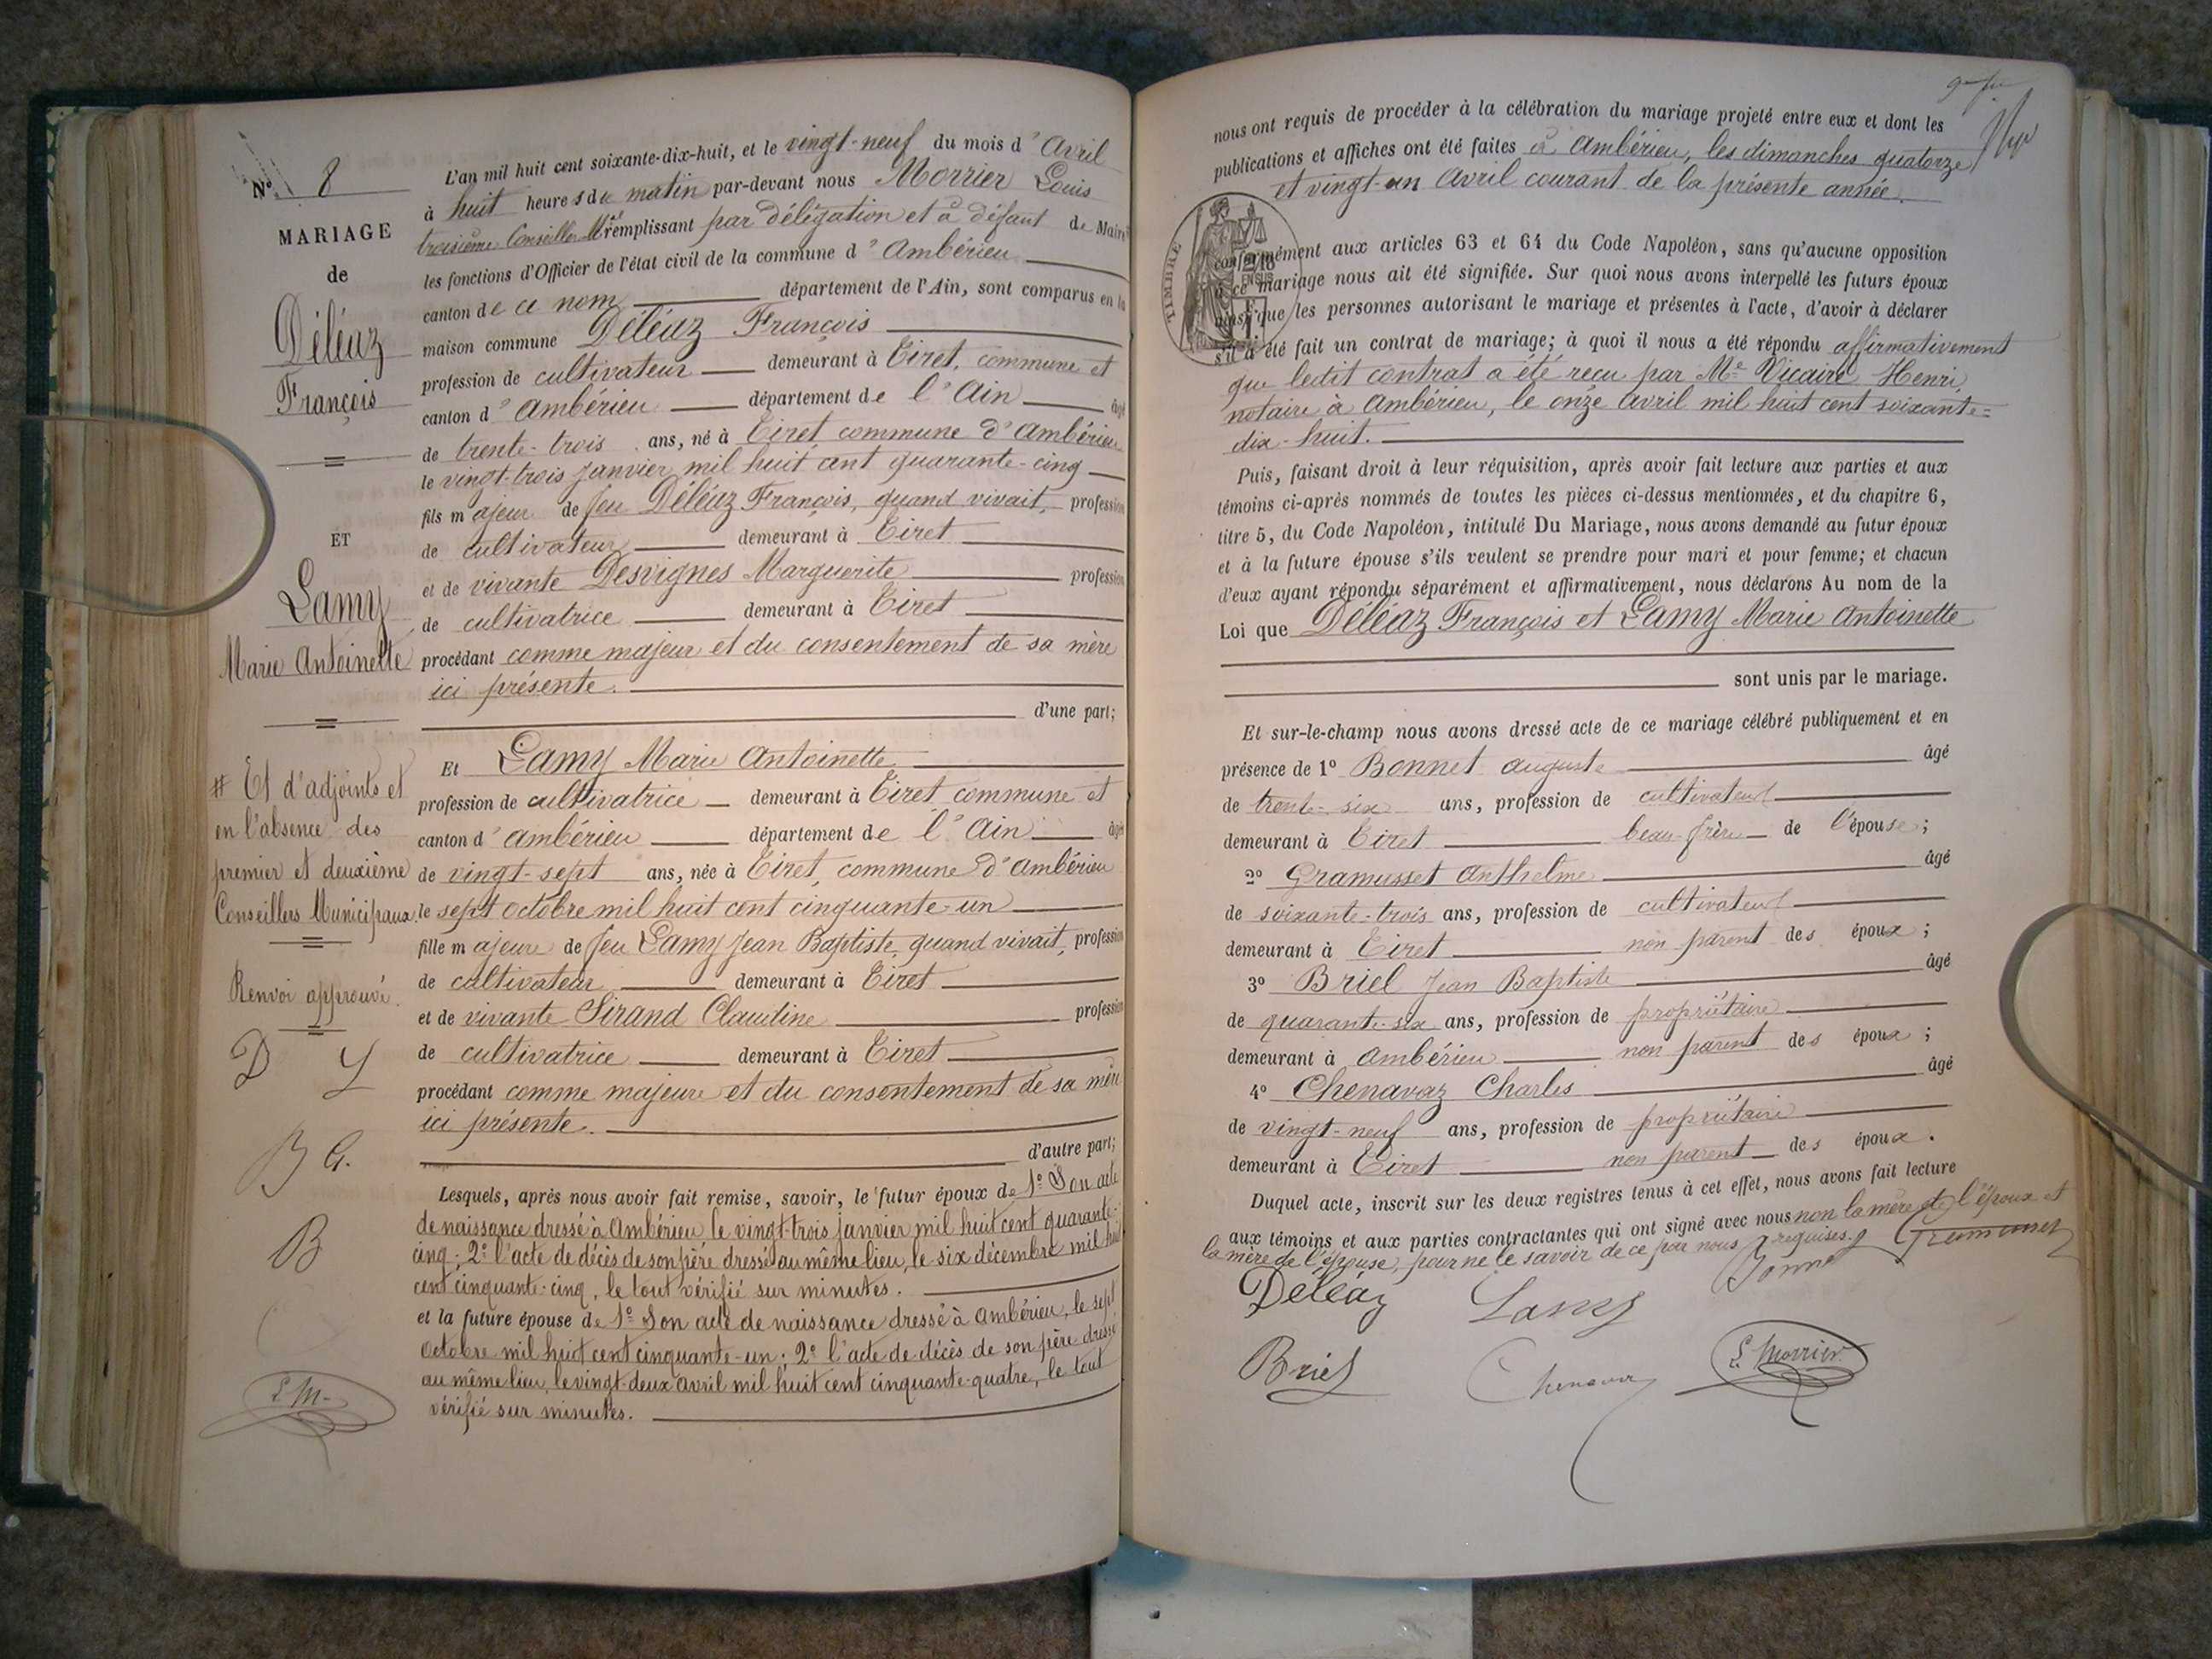 N° 8
MARIAGE
de
Déléaz
François
ET
Lamy
Marie Antoinette
# Et d'adjoints et
en l'absence des
premier et deuxième
Conseillers Municipaux.
Renvoi approuvé.
D L
B G.
B
L. M.
L'an mil huit cent soixante-dix-huit, et le vingt-neuf du mois d'Avril
à huit heures du matin par-devant nous Morrier Louis
troisième Conseiller Mal remplissant par délégation et à défaut de Maire #
les fonctions d'Officier de l'état civil de la commune d'Ambérieu
canton de ce nom département de l'Ain, sont comparus en la
maison commune Déléaz François
profession de cultivateur demeurant à Tiret, commune et
canton d'Ambérieu département de l'Ain âgé
de trente-trois ans, né à Tiret commune d'Ambérieu
le vingt-trois janvier mil huit cent quarante-cinq
fils majeur de feu Déléaz François, quand vivait, profession
de cultivateur demeurant à Tiret
et de vivante Desvignes Marguerite profession
de cultivatrice demeurant à Tiret
procédant comme majeur et du consentement de sa mère
ici présente.
d'une part;
Et Lamy Marie Antoinette
profession de cultivatrice demeurant à Tiret commune et
canton d'Ambérieu département de l'Ain âgée
de vingt-sept ans, née à Tiret, commune d'Ambérieu
le sept octobre mil huit cent cinquante-un
fille majeure de feu Lamy Jean Baptiste, quand vivait, profession
de cultivateur demeurant à Tiret
et de vivante Sirand Claudine profession
de cultivatrice demeurant à Tiret
procédant comme majeure et du consentement de sa mère
ici présente.
d'autre part;
Lesquels, après nous avoir fait remise, savoir, le futur époux de 1° Son acte
de naissance dressé à Ambérieu le vingt-trois janvier mil huit cent quarante-
cinq; 2° l'acte de décès de son père dressé au même lieu, le six décembre mil huit
cent cinquante-cinq, le tout vérifié sur minutes.
et la future épouse de 1° Son acte de naissance dressé à Ambérieu, le sept
octobre mil huit cent cinquante-un; 2° l'acte de décès de son père dressé
au même lieu, le vingt-deux avril mil huit cent cinquante-quatre, le tout
vérifié sur minutes.
nous ont requis de procéder à la célébration du mariage projeté entre eux et dont les
publications et affiches ont été faites à Ambérieu, les dimanches quatorze
et vingt-un Avril courant de la présente année.
TIMBRE
conformément aux articles 63 et 64 du Code Napoléon, sans qu'aucune opposition
à ce mariage nous ait été signifiée. Sur quoi nous avons interpellé les futurs époux
ainsi que les personnes autorisant le mariage et présentes à l'acte, d'avoir à déclarer
s'il a été fait un contrat de mariage; à quoi il nous a été répondu affirmativement
que ledit contrat a été reçu par Me Vicaire Henri,
notaire à Ambérieu, le onze Avril mil huit cent soixante-
dix-huit.
Puis, faisant droit à leur réquisition, après avoir fait lecture aux parties et aux
témoins ci-après nommés de toutes les pièces ci-dessus mentionnées, et du chapitre 6,
titre 5, du Code Napoléon, intitulé Du Mariage, nous avons demandé au futur époux
et à la future épouse s'ils veulent se prendre pour mari et pour femme; et chacun
d'eux ayant répondu séparément et affirmativement, nous déclarons Au nom de la
Loi que Déléaz François et Lamy Marie Antoinette
sont unis par le mariage.
Et sur-le-champ nous avons dressé acte de ce mariage célébré publiquement et en
présence de 1° Bonnet auguste âgé
de trente-six ans, profession de cultivateur
demeurant à Tiret beau-frère de l'épouse;
2° Gramusset Anthelme âgé
de soixante-trois ans, profession de cultivateur
demeurant à Tiret non parent des époux;
3° Briel Jean Baptiste âgé
de quarante-six ans, profession de propriétaire
demeurant à Ambérieu non parent des époux;
4° Chenavaz Charles âgé
de vingt-neuf ans, profession de propriétaire
demeurant à Tiret non parent des époux.
Duquel acte, inscrit sur les deux registres tenus à cet effet, nous avons fait lecture
aux témoins et aux parties contractantes qui ont signé avec nous non la mère de l'époux et
la mère de l'épouse, pour ne le savoir de ce par nous requises.
Déléaz Lamy Bonnet
Briel Chenavaz L. Morrier